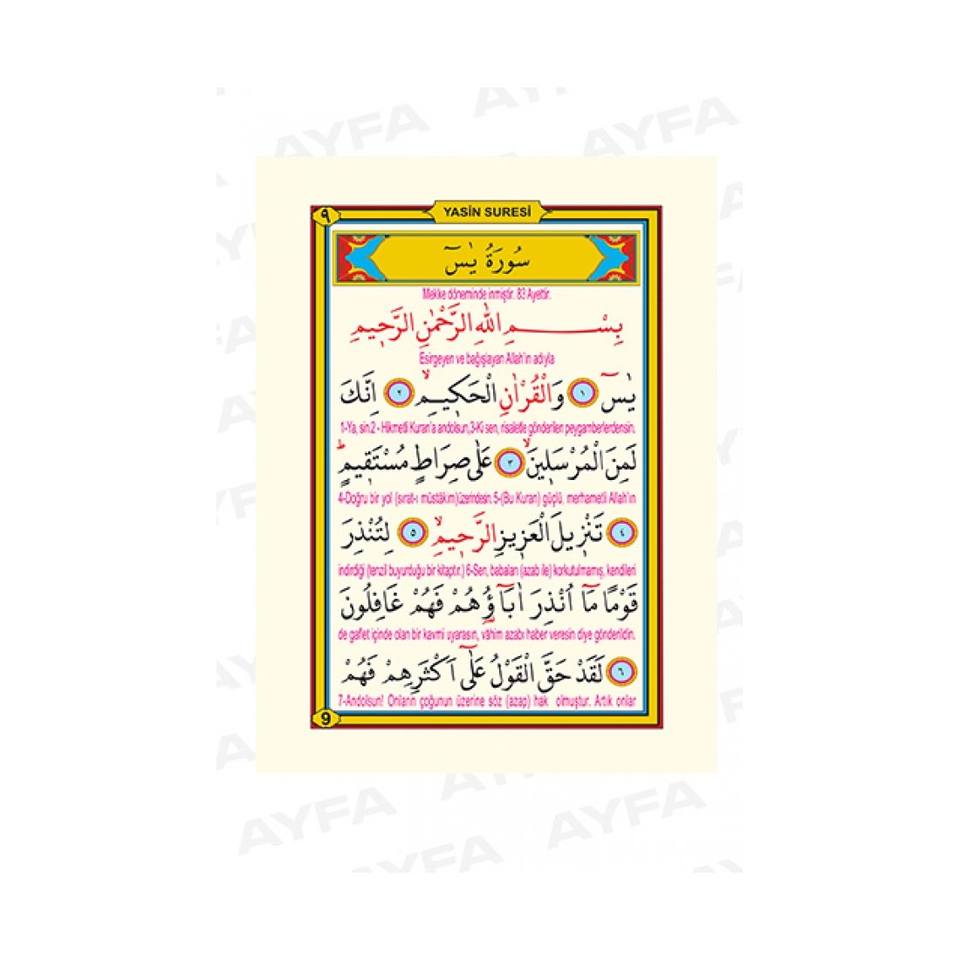 AYFA
AYFA
AYFA
٩
YASİN SURESİ
سُورَةُ يٰسٓ
Mekke döneminde inmiştir. 83 Ayettir.
بِسْمِ اللّٰهِ الرَّحْمٰنِ الرَّحٖيمِ
Esirgeyen ve bağışlayan Allah'ın adıyla
يٰسٓ ١ وَالْقُرْاٰنِ الْحَكٖيمِۙ ٢ اِنَّكَ
1-Ya, sin.2 - Hikmetli Kuran'a andolsun,3-Ki sen, risaletle gönderilen peygamberlerdensin.
لَمِنَ الْمُرْسَلٖينَۙ ٣ عَلٰى صِرَاطٍ مُسْتَقٖيمٍؕ
4-Doğru bir yol (sırat-ı müstakim)üzerindesin. 5-(Bu Kuran) güçlü, merhametli Allah'ın
٤ تَنْزٖيلَ الْعَزٖيزِ الرَّحٖيمِۙ ٥ لِتُنْذِرَ
indirdiği (tenzil buyurduğu bir kitaptır.) 6-Sen, babaları (azab ile) korkutulmamış, kendileri
قَوْمًا مَٓا اُنْذِرَ اٰبَٓاؤُ۬هُمْ فَهُمْ غَافِلُونَ
de gaflet içinde olan bir kavmi uyarasın, vahim azabı haber veresin diye gönderildin.
٦ لَقَدْ حَقَّ الْقَوْلُ عَلٰٓى اَكْثَرِهِمْ فَهُمْ
7-Andolsun! Onların çoğunun üzerine söz (azap) hak olmuştur. Artık onlar
9
AYFA
AYFA
AYFA